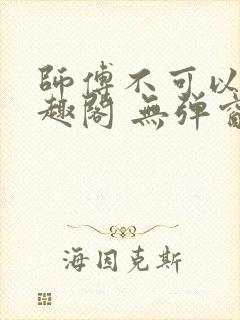 師傅不可以
趣閣 無彈
海因克斯